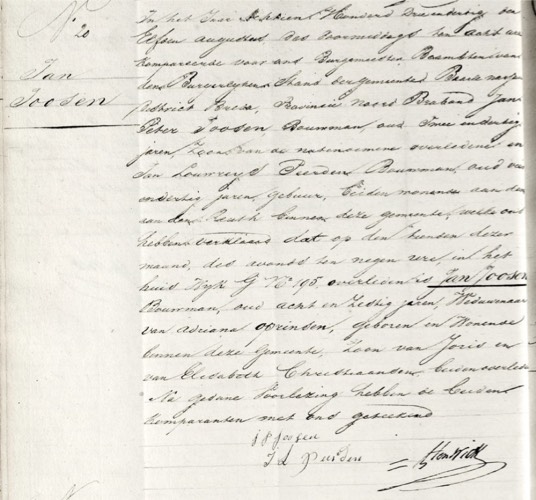 N.
20
Jan
Joosen
In het Jaar Achttien Honderd Drie en dertig den
Elfden augustus, des voormiddags ten acht ure
kompareerde voor ons Burgemeester Beambte van
den Burgerlyken Stand der gemeente Baarle nassau
district Breda, Provincie Noord Braband Jan
Peter Joosen Bouwman, oud Twee en dertig
jaren, Zoon van de natenoemene overledene en
Jan Bouwman, oud
en dertig jaren, gebuur, beiden wonende aan den
aan den Reuth binnen deze gemeente, welke ons
hebben verklaard dat op den tienden dezer
maand, des avonds ten negen ure, in het
huis Wyk G N. 195, overleden is Jan Joosen
Bouwman, oud acht en Zestig jaren, Weduwnaar
van adriana geboren en Wonende
binnen deze Gemeente, Zoon van Joris en
van Elisabeth Christiaanden, beiden overleden
Na gedane Voorlezing hebben de beiden
komparanten met ons geteekend
J P Joosen